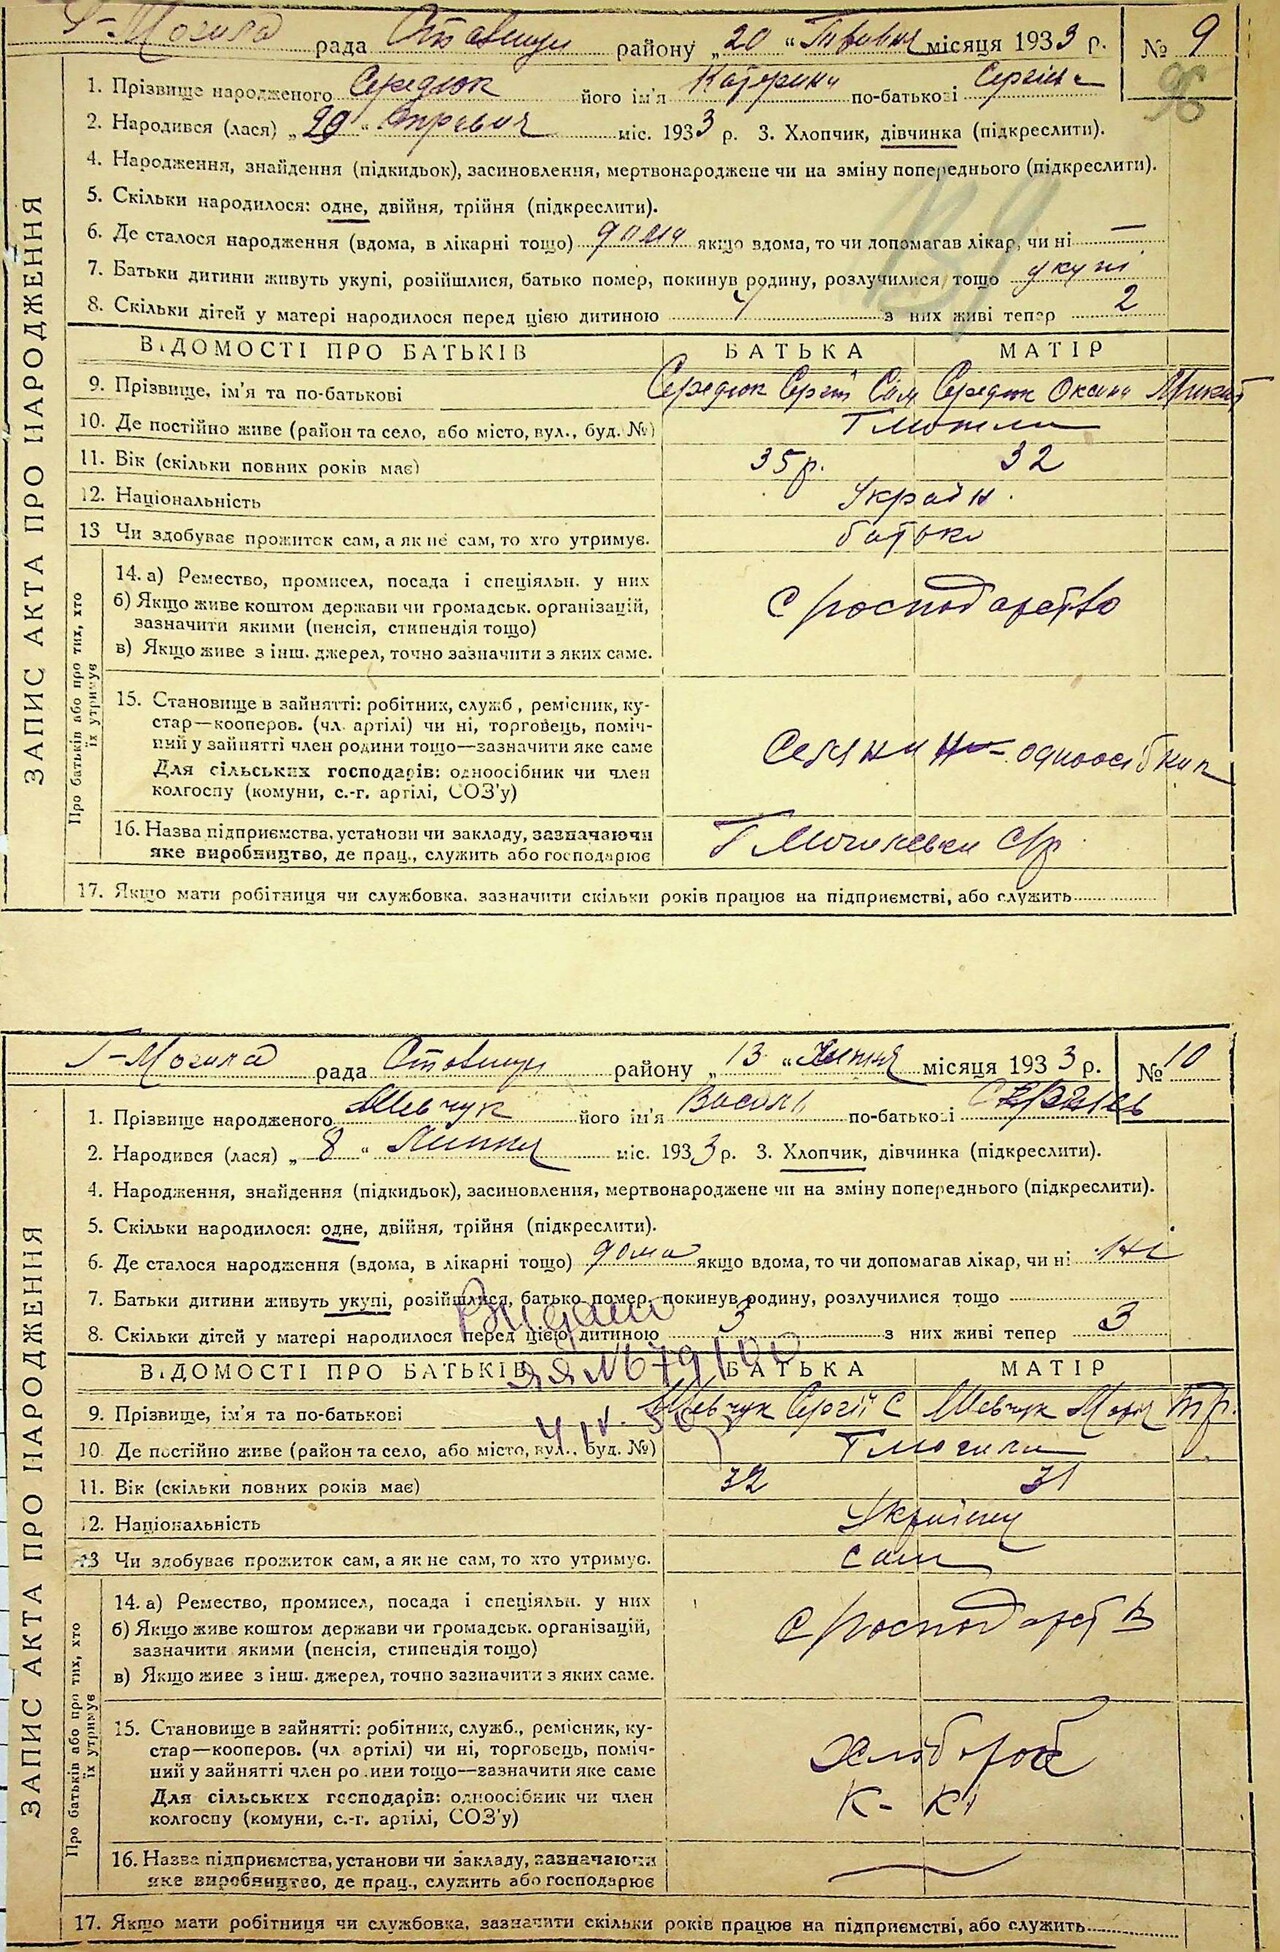 Г-Могила рада Ставищ району „20 “ місяця 1933 р. № 9
96
1. Прізвище народженого Середюк його ім'я Катерина по-батькові Сергіївна
2. Народився (лася) „ 29 “ міс. 1933 р. 3. Хлопчик, дівчинка (підкреслити).
4. Народження, знайдення (підкидьок), засиновлення, мертвонароджене чи на зміну попереднього (підкреслити).
5. Скільки народилося: одне, двійня, трійня (підкреслити).
6. Де сталося народження (вдома, в лікарні тощо) дома якщо вдома, то чи допомагав лікар, чи ні —
7. Батьки дитини живуть укупі, розійшлися, батько помер, покинув родину, розлучилися тощо укупі
8. Скільки дітей у матері народилося перед цією дитиною з них живі тепер 2
ВІДОМОСТІ ПРО БАТЬКІВ БАТЬКА МАТІР
9. Прізвище, ім'я та по-батькові Середюк Сергій Сам Середюк Оксана Микит
10. Де постійно живе (район та село, або місто, вул., буд. №) Г могила
11. Вік (скільки повних років має) 35 р. 32
12. Національність Україн.
13 Чи здобуває прожиток сам, а як не сам, то хто утримує. батько
14. а) Ремество, промисел, посада і спеціяльн. у них
б) Якщо живе коштом держави чи громадськ. організацій,
зазначити якими (пенсія, стипендія тощо)
с господарство
в) Якщо живе з інш. джерел, точно зазначити з яких саме.
15. Становище в зайнятті: робітник, служб, ремісник, ку-
стар—кооперов. (чл. артілі) чи ні, торговець, поміч-
ний у зайнятті член родини тощо—зазначити яке саме
Для сільських господарів: одноосібник чи член
колгоспу (комуни, с.-г. артілі, СОЗ'у)
Селянин одноосібник
16. Назва підприємства, установи чи закладу, зазначаючи
яке виробництво, де прац., служить або господарює
17. Якщо мати робітниця чи службовка, зазначити скільки років працює на підприємстві, або служить
ЗАПИС АКТА ПРО НАРОДЖЕННЯ
Про батьків або про тих, хто
їх утримує
Г-Могила рада Ставищ району „ 13 “ Липня місяця 1933 р. № 10
1. Прізвище народженого Шевчук його ім'я Василь по-батькові
2. Народився (лася) „ 8 “ Липня міс. 1933 р. 3. Хлопчик, дівчинка (підкреслити).
4. Народження, знайдення (підкидьок), засиновлення, мертвонароджене чи на зміну попереднього (підкреслити).
5. Скільки народилося: одне, двійня, трійня (підкреслити).
6. Де сталося народження (вдома, в лікарні тощо) дома якщо вдома, то чи допомагав лікар, чи ні ні
7. Батьки дитини живуть укупі, розійшлися, батько помер, покинув родину, розлучилися тощо
8. Скільки дітей у матері народилося перед цією дитиною 3 з них живі тепер 3
Видано
ЯЯ №
ВІДОМОСТІ ПРО БАТЬКІВ БАТЬКА МАТІР
9. Прізвище, ім'я та по-батькові Шевчук Сергій С Шевчук Марія Тр.
10. Де постійно живе (район та село, або місто, вул., буд. №) Г могила
11. Вік (скільки повних років має) 32 31
12. Національність Українц
13 Чи здобуває прожиток сам, а як не сам, то хто утримує. сам
14. а) Ремество, промисел, посада і спеціяльн. у них
б) Якщо живе коштом держави чи громадськ. організацій,
зазначити якими (пенсія, стипендія тощо)
с господарств
в) Якщо живе з інш. джерел, точно зазначити з яких саме.
15. Становище в зайнятті: робітник, служб., ремісник, ку-
стар—кооперов. (чл артілі) чи ні, торговець, поміч-
ний у зайнятті член родини тощо—зазначити яке саме
Для сільських господарів: одноосібник чи член
колгоспу (комуни, с.-г. артілі, СОЗ'у)
Хлібороб
16. Назва підприємства, установи чи закладу, зазначаючи
яке виробництво, де прац., служить або господарює
17. Якщо мати робітниця чи службовка, зазначити скільки років працює на підприємстві, або служить
ЗАПИС АКТА ПРО НАРОДЖЕННЯ
Про батьків або про тих, хто
їх утримує